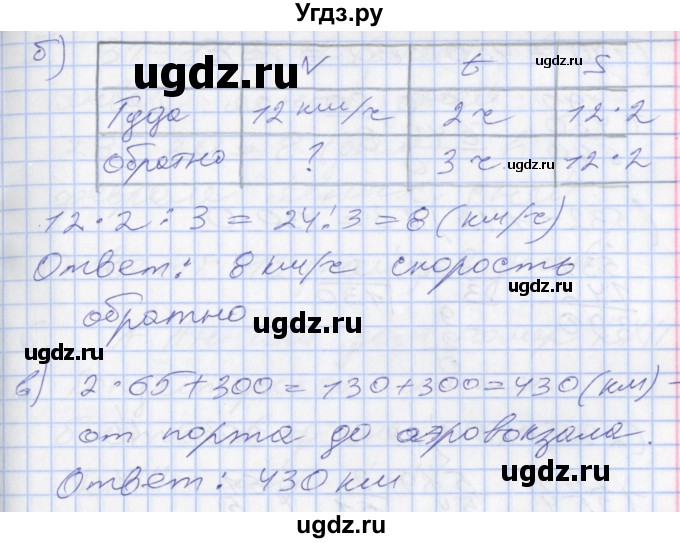 Угдз.ру
б)
ugdz.ru v t S
Туда 12 км/ч 2 ч 12·2
обратно ? 3 ч 12·2
ugdz.ru
12·2:3 = 24:3 = 8 (км/ч)
Ответ: 8 км/ч скорость
ugdz.ru
обратно
ugdz.ru
в) 2·65+300 = 130+300 = 430 (км) -
от порта до аэровокзала.
ugdz.ru
Ответ: 430 км
ugdz.ru
ugdz.ru